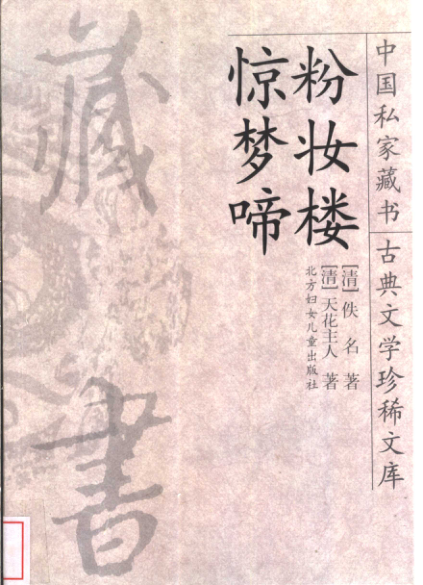 中国私家藏书
古典文学珍稀文库
粉妆楼
惊梦啼
[清]佚名 著
[清]天花主人 著
北方妇女儿童出版社
藏書